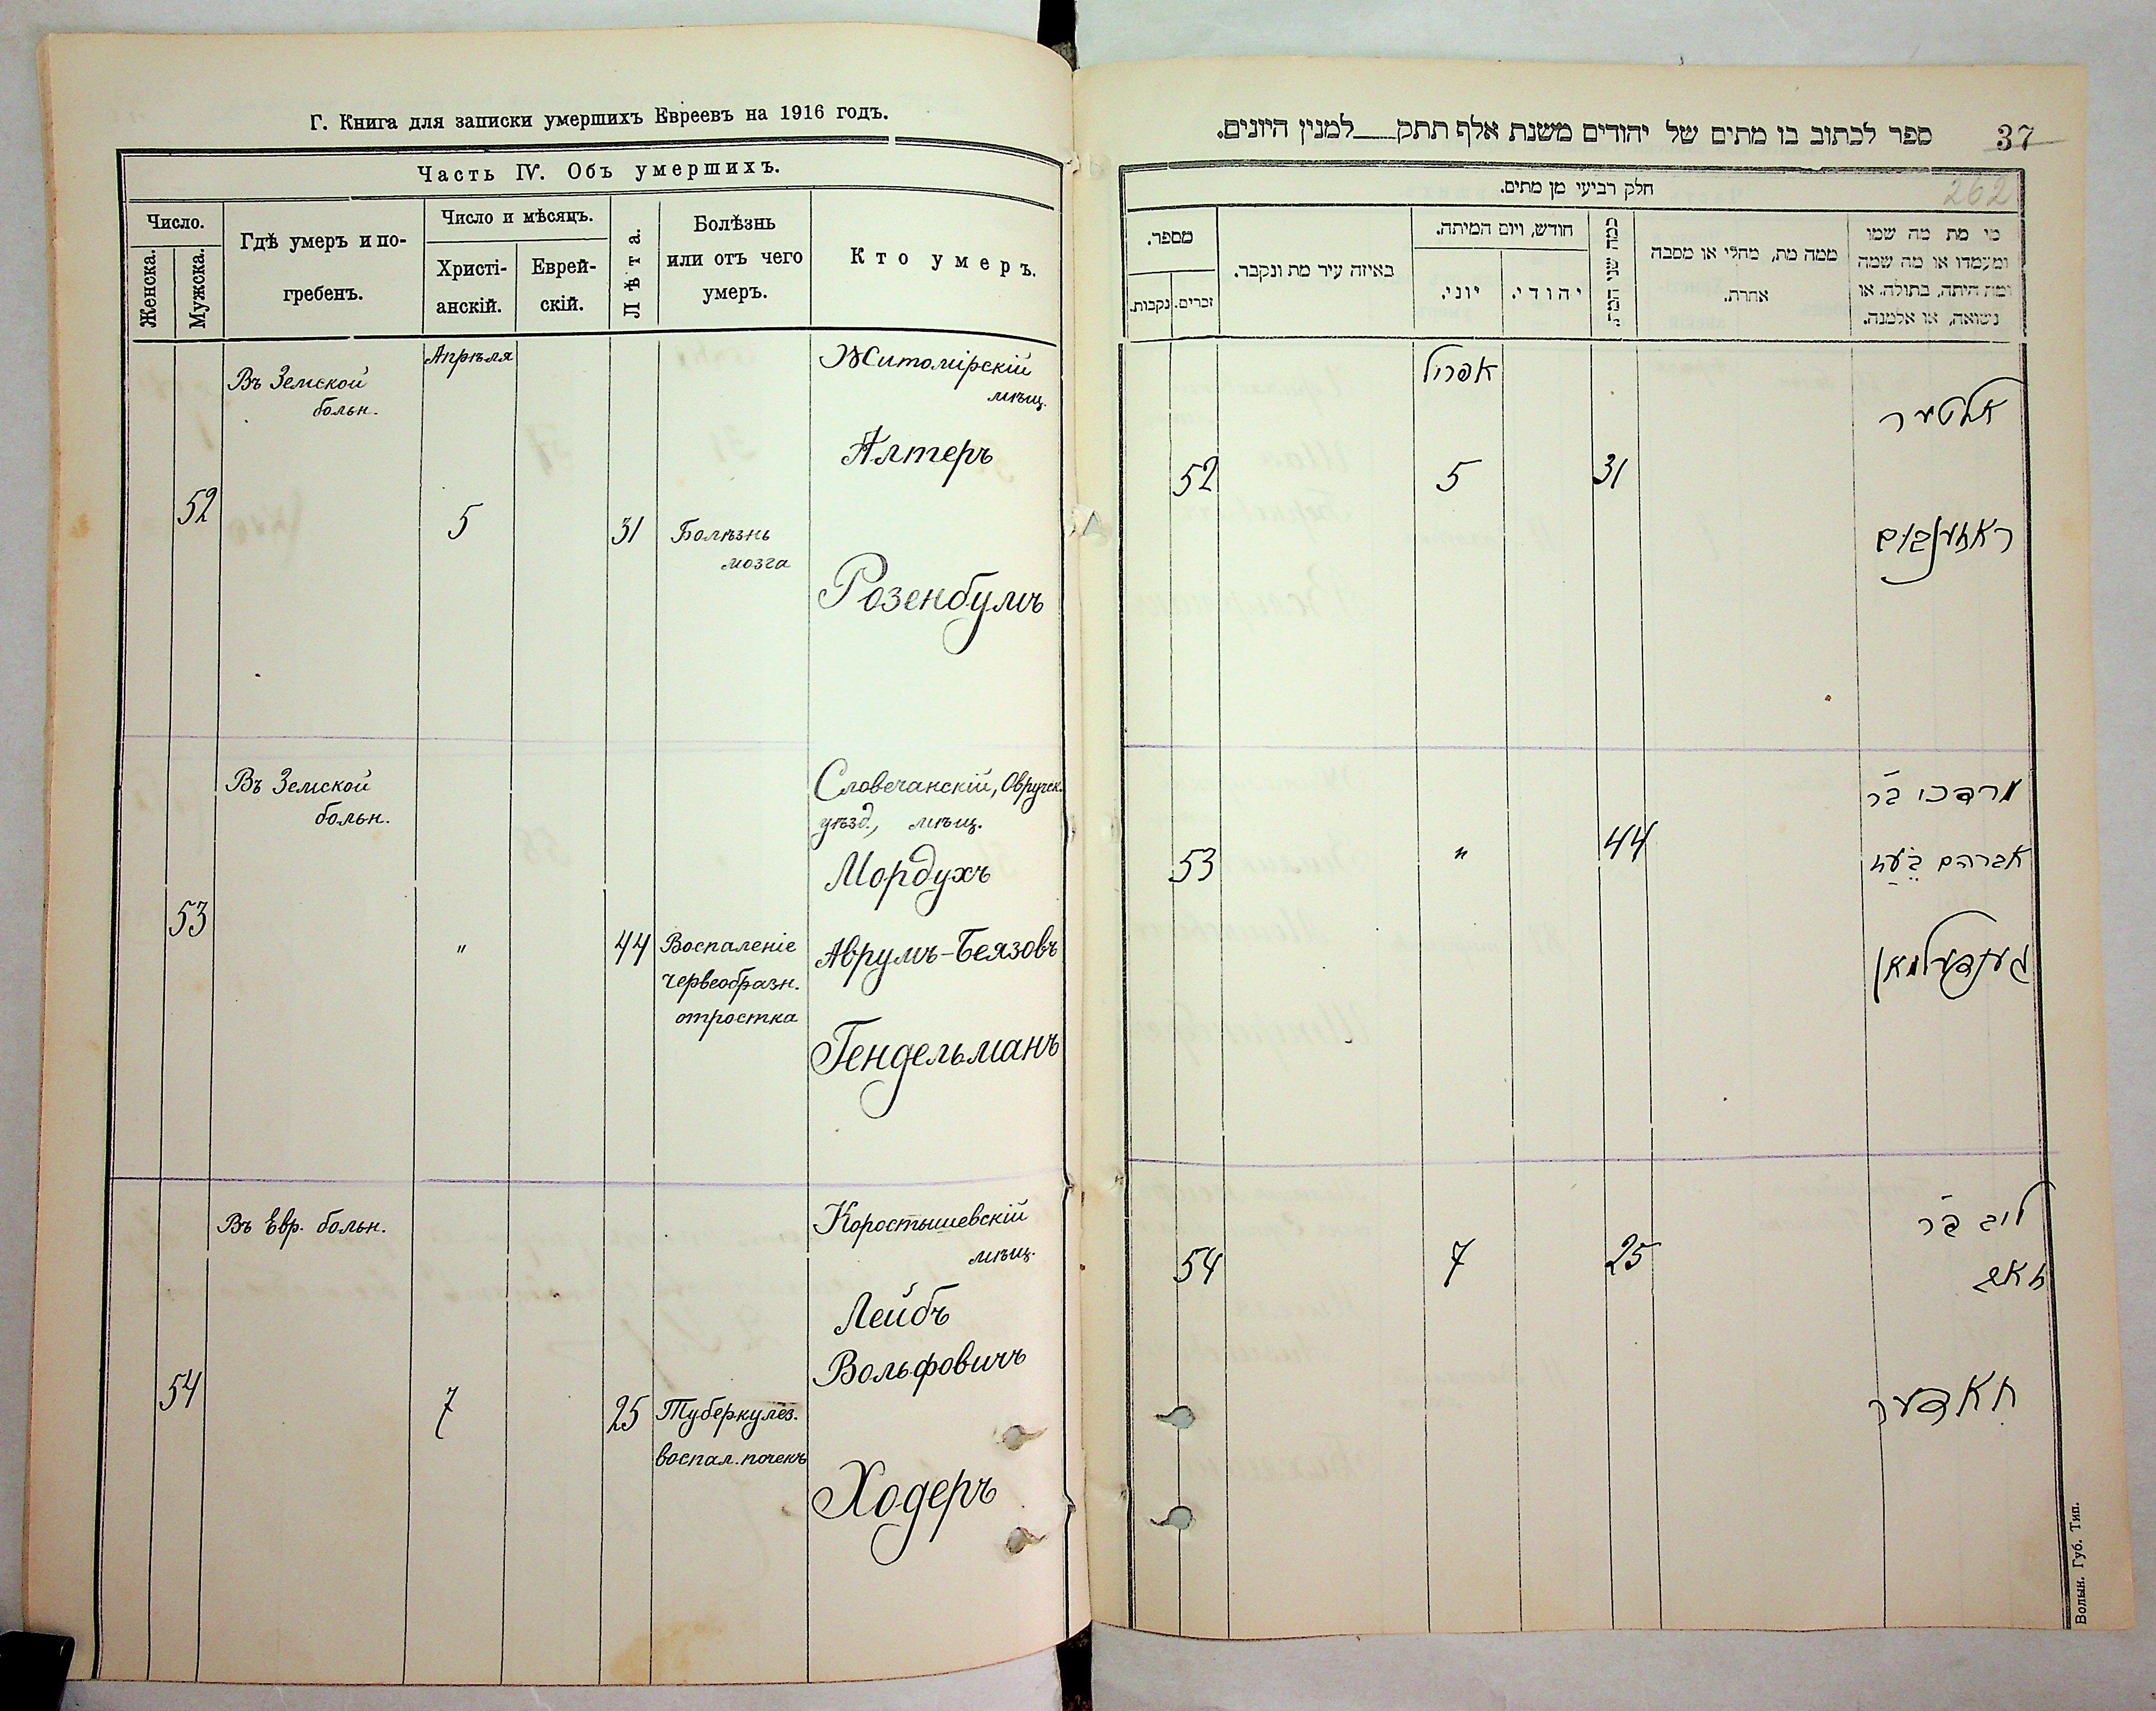 Г. Книга для записки умершихъ Евреевъ на 1916 годъ.
Часть IV. Объ умершихъ.
Число.
Женска.
Мужска.
Гдѣ умеръ и по-
гребенъ.
Число и мѣсяцъ.
Христі-
анскій.
Еврей-
скій.
Лѣта.
Болѣзнь
или отъ чего
умеръ.
Кто умеръ.
Апрѣля
Въ Земской
больн.
52
5
31
Болѣзнь
мозга
Житомірскій
мѣщ.
Алтеръ
Розенбумъ
Въ Земской
больн.
53
"
44
Воспаленіе
червеобразн.
отростка
Словечанскій, Овручск.
уѣзд., мѣщ.
Мордухъ
Аврумъ-Беязовъ
Гендельманъ
Въ Евр. больн.
54
7
25
Туберкулёз.
воспал. почекъ
Коростышевскій
мѣщ.
Лейбъ
Вольфовичъ
Ходеръ
37
ספר לכתוב בו מתים של יהודים משנת אלף תתק__למנין היונים.
262
חלק רביעי מן מתים.
מספר.
זכרים.
נקבות.
באיזה עיר מת ונקבר.
חודש, ויום המיתה.
יוני.
יהודי.
כמה שני המת.
ממה מת, מחלי או מסבה
אחרת.
מי מת מה שמו
ומעמדו או מה שמה
ומה היתה, בתולה, או
נשואה, או אלמנה.
אפריל
52
5
31
אלטער
ראזענבוים
53
"
44
מרדכי בר
אברהם
גענדעלמאן
54
7
25
ליב בר
חאדער
Волын. Губ. Тип.